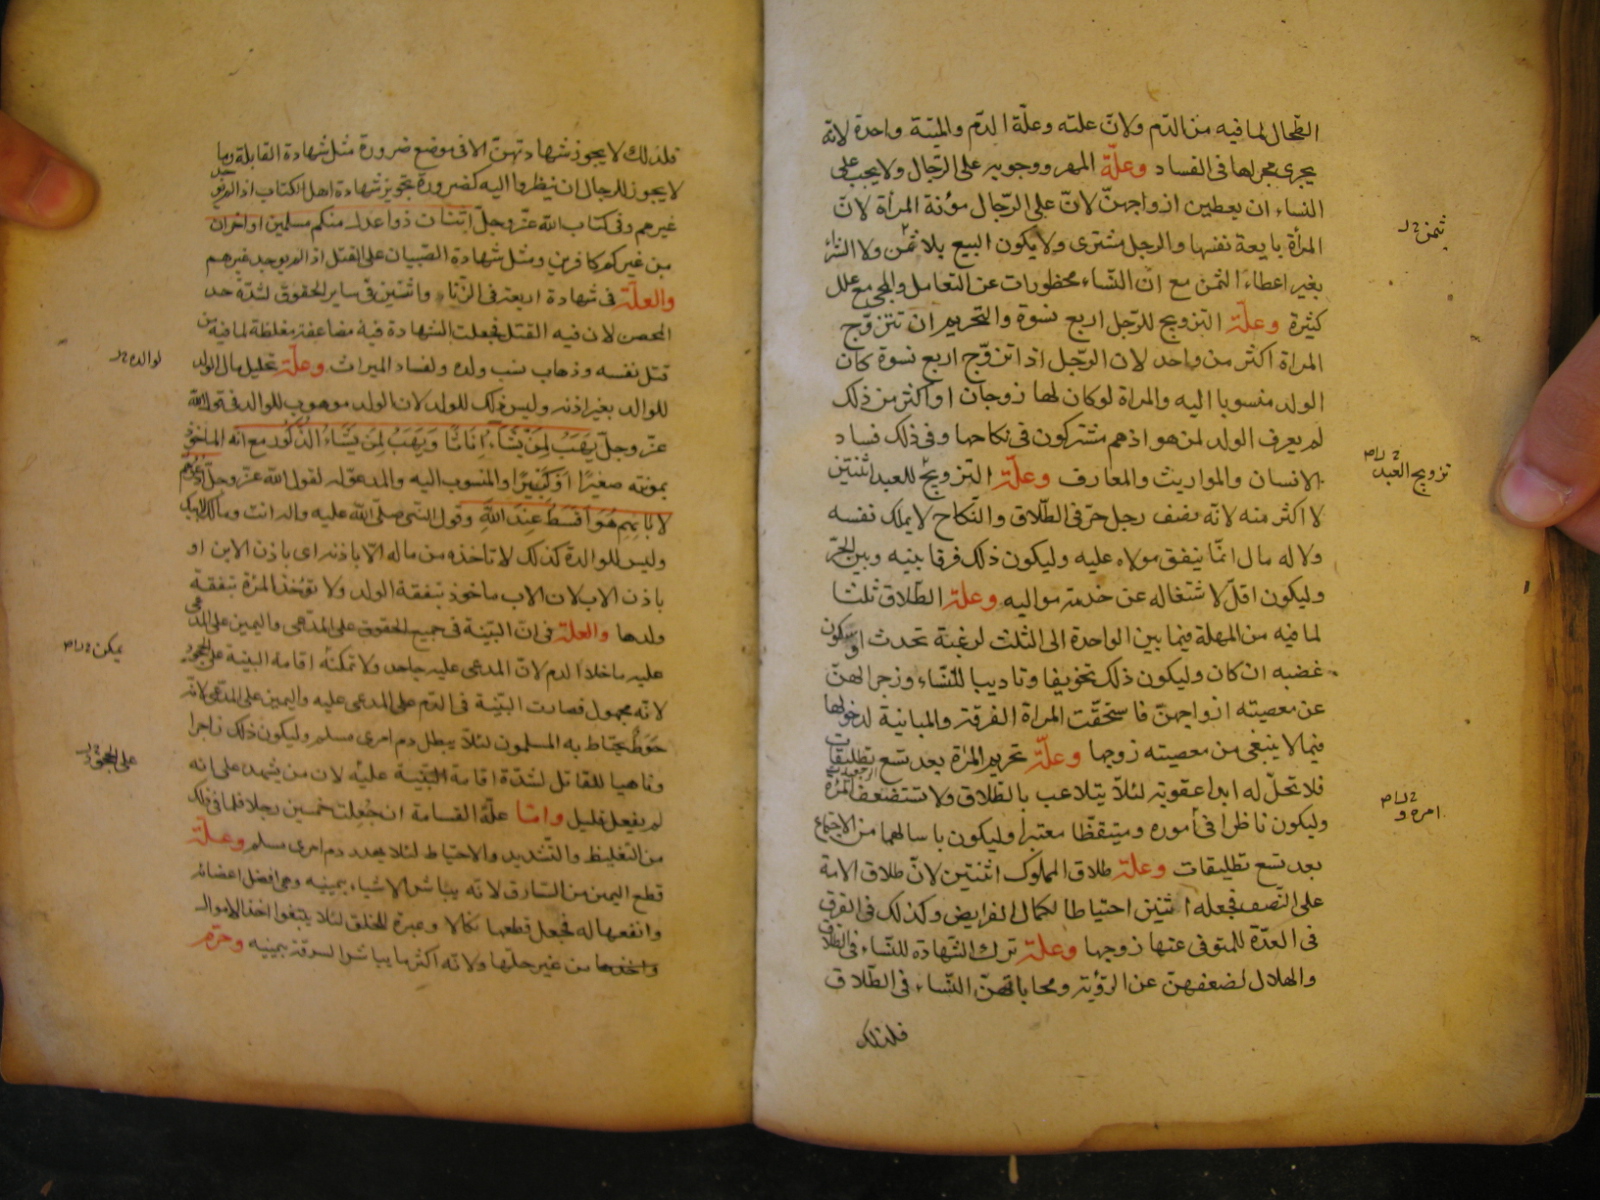 الطحال لما فيه من الدّم ولانّ علته وعلّة الدّم والميتة واحدة لانّه
يجرى مجراها فى الفساد وعلّة المهر ووجوبه على الرّجال ولا يجب على
النساء ان يعطين ازواجهنّ لانّ على الرّجال مؤنة المرأة لانّ
المرأة بايعة نفسها والرجل مشترى ولا يكون البيع بلا ثمن ولا الشراء
بغير اعطاء الثمن مع انّ النّساء محظورات عن التعامل والمجى مع علل
كثيرة وعلّة التزويج للرّجل اربع نسوة والتحريم ان تتزوّج
المراة اكثر من واحد لان الرّجل اذا تزوّج اربع نسوة كان
الولد منسوبا اليه والمراة لو كان لها زوجان او اكثر من ذلك
لم يعرف الولد لمن هو اذ هم مشتركون فى نكاحها وفى ذلك فساد
الانساب والمواريث والمعارف وعلّة التزويج للعبد اثنتين
لا اكثر منه لانّه نصف رجل حرّ فى الطّلاق والنّكاح لا يملك نفسه
ولا له مال انمّا ينفق مولاه عليه وليكون ذلك فرقا بينه وبين الحرّ
وليكون اقلّ لاشتغاله عن خدمة مواليه وعلة الطّلاق ثلثا
لما فيه من المهلة فيما بين الواحدة الى الثلث لرغبة تحدث او سكون
غضبه ان كان وليكون ذلك تخويفا وتاديبا للنّساء وزجرا لهنّ
عن معصيته ازواجهنّ فاستحقّت المراة الفرقة والمباينة لدخولها
فيما لا ينبغى من معصيته زوجها وعلّة تحريم المرٔاة بعد تسع تطليقات
فلا تحلّ له ابدا عقوبة لئلاّ يتلاعب بالطّلاق ولا تستضعف المرٔة
وليكون ناظرا فى أموره ومتيقظا معتبرا وليكون ياسا لهما من الاجتماع
بعد تسع تطليقات وعلّة طلاق المملوك اثنتين لانّ طلاق الامة
على النّصف فجعله اثنتين احتياطا لكمال الفرايض وكذلك فى الفرق
فى العدّة للمتوفى عنها زوجها وعلة ترك الشّهادة للنّساء فى الطلاق
والهلال لضعفهنّ عن الرّؤية ومحاباتهنّ النّساء فى الطّلاق
فلذلك
ثمن
تزويج العبد
امره و
فلذلك لا يجوز شهادتهنّ الا فى موضع ضرورة مثل شهادة القابلة وما
لا يجوز للرجال ان ينظروا اليه كضرورة تجويز شهادة اهل الكتاب اذا لم يوجد
غيرهم وفى كتاب الله عزّ وجلّ اثنان ذوا عدل منكم مسلمين او اخران
من غيركم كافرين ومثل شهادة الصّبيان على القتل اذا لم يوجد غيرهم
والعلّة فى شهادة اربعة فى الزّناء واثنين فى ساير الحقوق لشدّة حد
المحصن لان فيه القتل فجعلت الشهادة فيه مضاعفة مغلظة لما فيه من
قتل نفسه وذهاب نسب ولده ولفساد الميراث وعلّة تحليل مال الولد
للوالد بغير اذنه وليس ذلك للولد لان الولد موهوب للوالد فى قول الله
عزّ وجلّ يَهَبُ لِمَنْ يَشَاءُ اِنَاثًا وَيَهَبُ لِمَن يَشَاءُ الذُكُور مع انّه الماخوذ
بمونته صغيرًا اوكَبيرًا والمنسوب اليه والمدعوّ له لقول الله عزّ وجلّ ادعوهم
لابائهِم هُوَ اَقسَطُ عِندَ اللهِ وقول النّبى صلّى الله عليه واله انت ومالك لابيك
وليس للوالدة كذلك لا تاخذ من ماله الاّ باذنه اى باذن الابن او
باذن الاب لان الاب ماخوذ بنفقة الولد ولا تؤخذ المرٔة بنفقة
ولدها والعلة فى انّ البيّنة فى جميع الحقوق على المدّعى واليمين على المدّعى
عليه ما خلا الدم لانّ المدعى عليه جاحد ولا تمكنه اقامة البينة على الجحود
لانّه مجهول فصارت البيّنة فى الدّم على المدعى عليه واليمين على المدّعى لانّه
حَوطٌ يحتاط به المسلمون لئلاّ يبطل دم امرى مسلم وليكون ذلك زاجرا
وناهيا للقاتل لشدّة اقامة البيّنة عليه لان من يشهد على انه
لم يفعل قليل وامّا علّة القسامة ان جُعِلت خمسين رجلا فلما فى ذلك
من التغليظ والتّشديد والاحتياط لئلا يهدر دم امرى مسلم وعلّة
قطع اليمين من السّارق لانّه يباشر الاشياء بيمينه وهى افضل اعضائه
وانفعها له فجعل قطعها نكالا وعبرة للخلق لئلا يبتغوا اخذ الاموال
واخذها من غير حلّها ولانّه اكثر ما يباشر السرقة بيمينه وحرّم
لوالده
يمكن
على الجحود